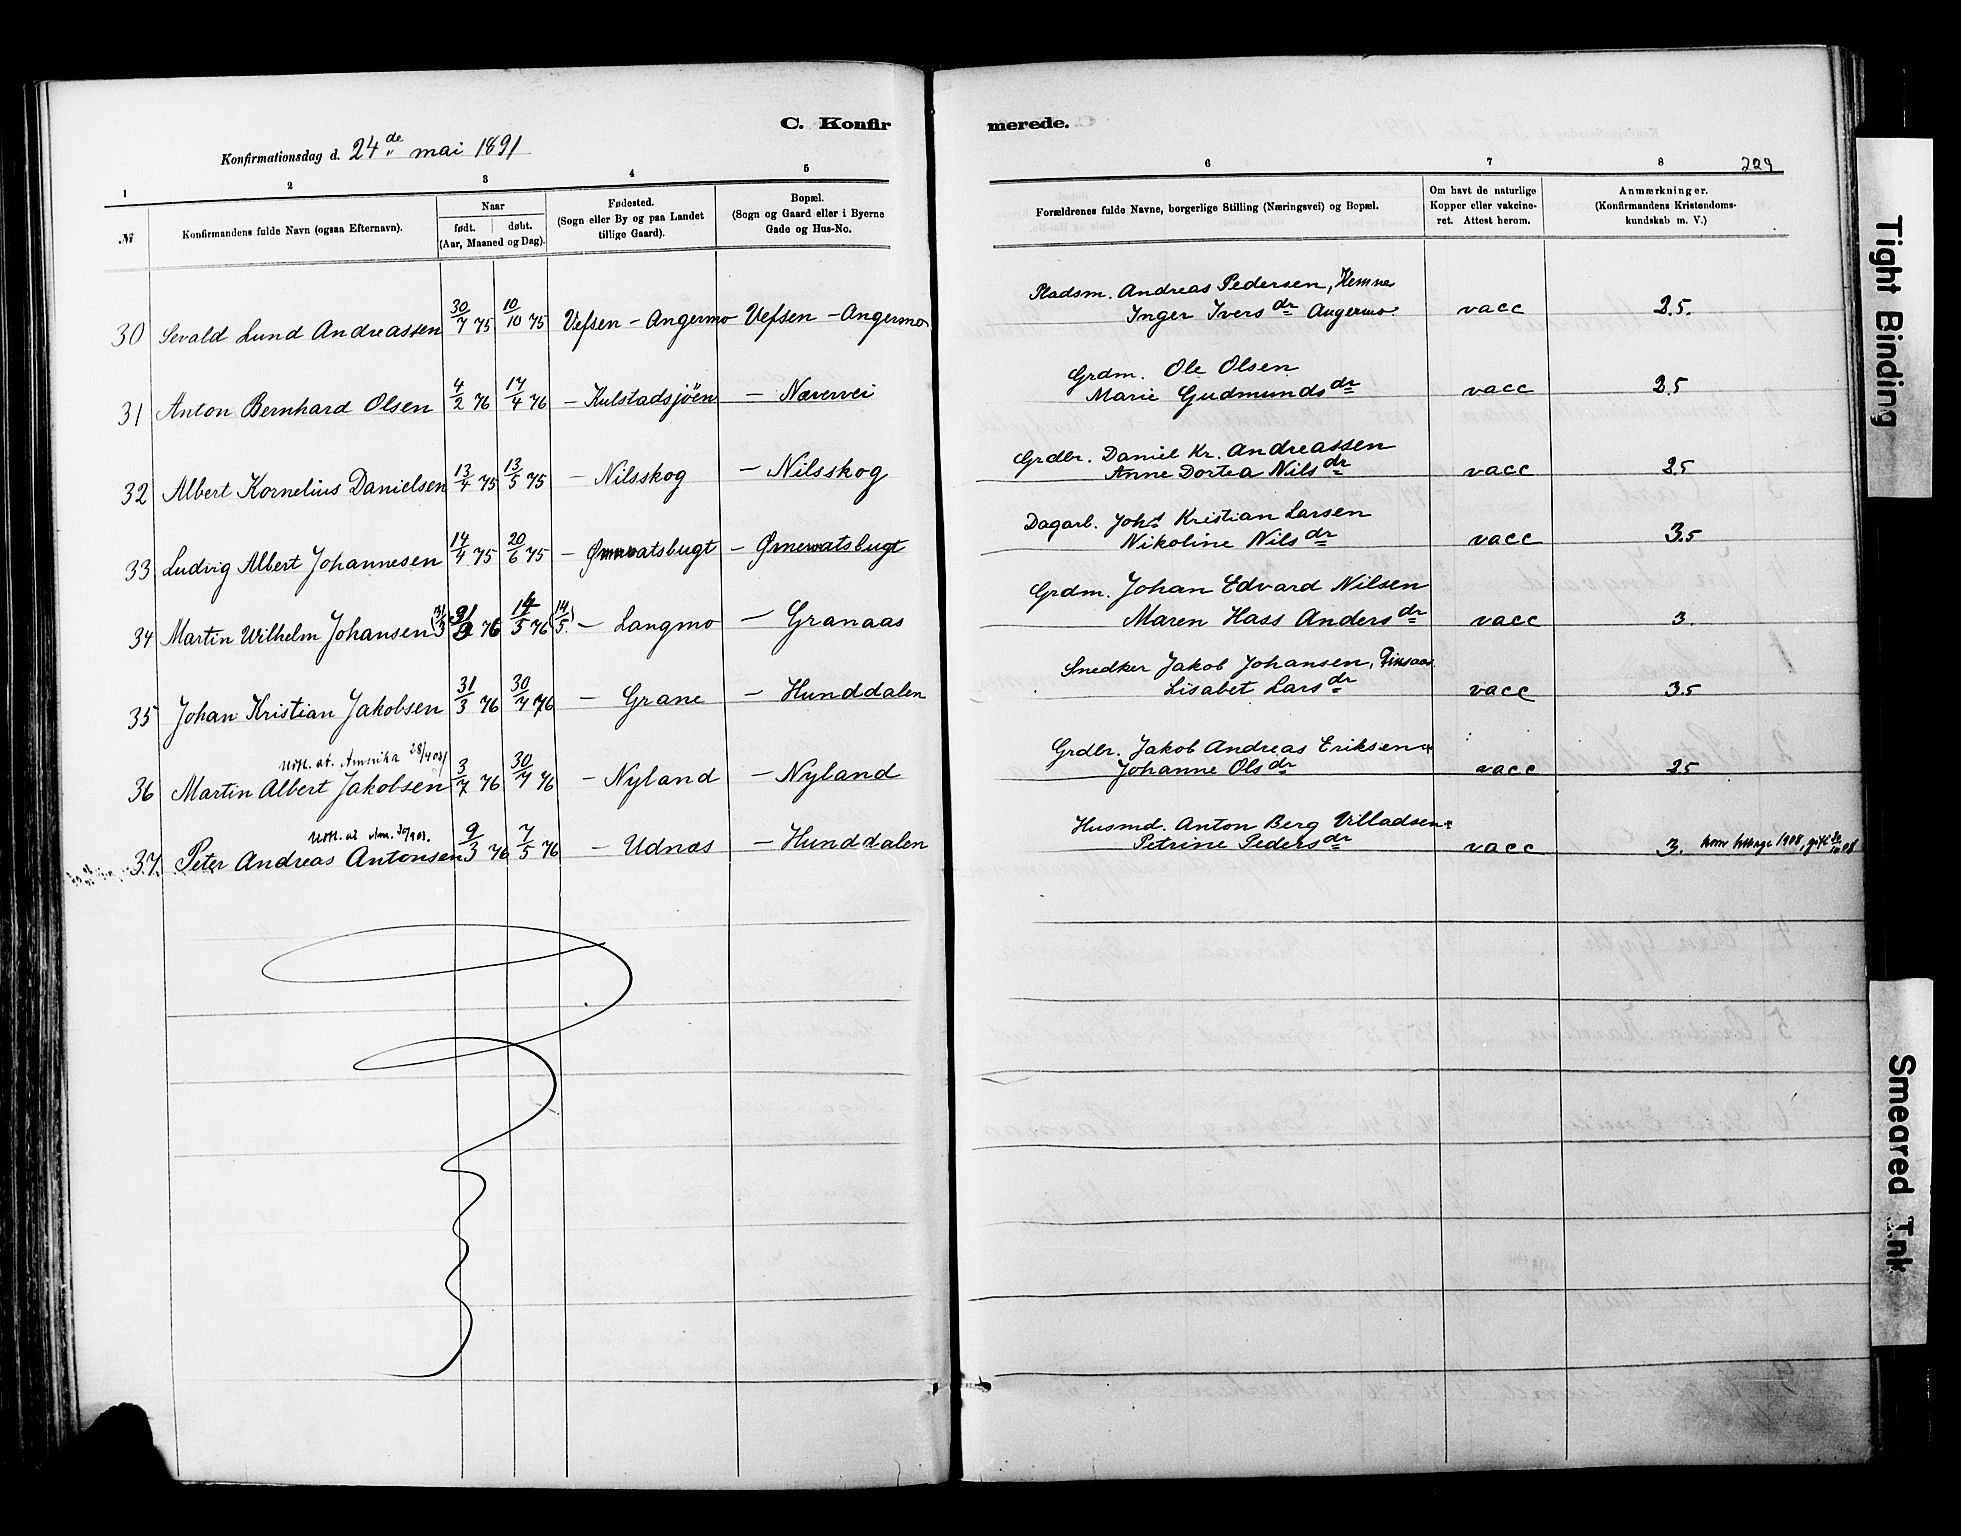 C. Konfirmerede.
Konfirmationsdag d. 24de mai 1891
229
1 2 3 4 5 6 7 8
№
Konfirmandens fulde Navn (ogsaa Efternavn).
Naar
født. døbt.
(Aar, Maaned og Dag).
Fødested.
(Sogn eller By og paa Landet
tillige Gaard).
Bopæl.
(Sogn og Gaard eller i Byerne
Gade og Hus-No.
Forældrenes fulde Navne, borgerlige Stilling (Næringsvei) og Bopæl.
Om havt de naturlige
Kopper eller vakcine-
ret. Attest herom.
Anmærkninger.
(Konfirmandens Kristendoms-
kundskab m. V.)
Pladsm. Andreas Pedersen, Hemne
30 Sevald Lund Andreassen 30/7 75 10/10 75 Vefsen - Angermo Vefsen - Angermo Inger Iversdr Angermo vacc 2.5.
Grdm. Ole Olsen
31 Anton Bernhard Olsen 4/2 76 17/4 76 - Kulstadsjöen - Nævervei Marie Gudmundsdr vacc 2.5
Grdbr. Daniel Kr. Andreassen
32 Albert Kornelius Danielsen 13/4 75 13/5 75 - Nilsskog - Nilsskog Anne Dortea Nilsdr vacc 25
Dagarb. Johs Kristian Larsen
33 Ludvig Albert Johannesen 14/4 75 20/6 75 - Ørnevatsbugt - Ørnevatsbugt Nikoline Nilsdr vacc 3.5
Grdm. Johan Edvard Nilsen
34 Martin Wilhelm Johansen (31/3) 31/3 76 14/5 76 (14/5) - Langmo - Granaas Maren Hass Andersdr vacc 3.
Snedker Jakob Johansen,
35 Johan Kristian Jakobsen 31/3 76 30/4 76 - Grane - Hunddalen Lisabet Larsdr vacc 3.5
Udfl. at. Amerika 28/4 03
Grdbr. Jakob Andreas Eriksen
36 Martin Albert Jakobsen 3/7 76 30/7 76 - Nyland - Nyland Johanne Olsdr vacc 25
Udfl. at Am.
Husmd. Anton Berg Villadsen
37. Peter Andreas Antonsen 9/3 76 7/5 76 - Udnæs - Hunddalen Petrine Pedersdr vacc 3. kom tilbage 1908, gift
Tight Binding
Smeared Ink